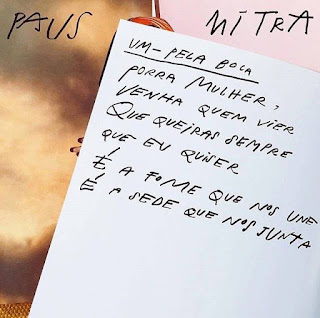 PAUS MITRA
UM-PELA BOCA
PORRA MULHER,
VENHA QUEM VIER
QUE QUEIRAS SEMPRE
QUE EU QUISER
É A FOME QUE NOS UNE
É A SEDE QUE NOS JUNTA